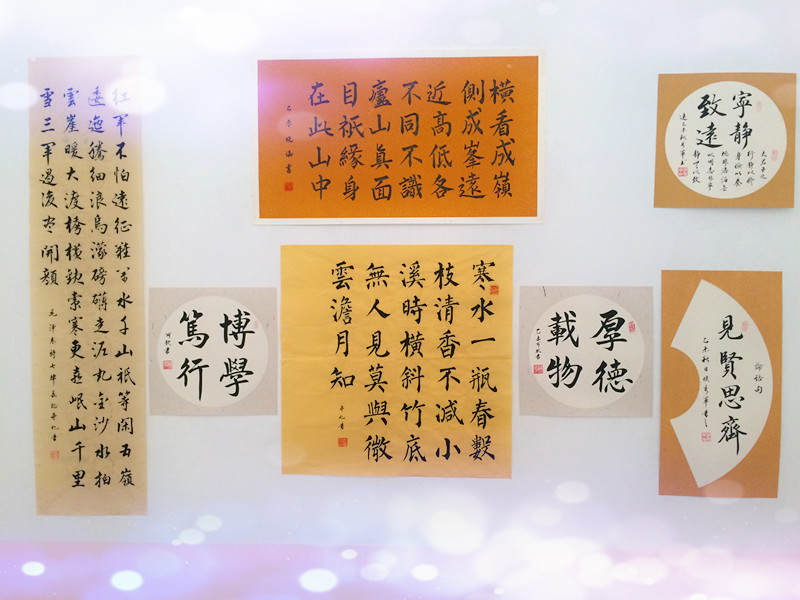 紅軍不怕遠征難萬水千山祇等閑五嶺
逶迤騰細浪烏濛磅礴走泥丸金沙水拍
雲崖暖大渡橋橫鉄索寒更喜岷山千里
雪三軍過後盡開顏
橫看成嶺
側成峯遠
近高低各
不同不識
廬山真面
目祇緣身
在此山中
寧靜
致遠
夫君子之
行静以修
身儉以養
博學
篤行
寒水一瓶春數
枝清香不減小
溪時橫斜竹底
無人見莫與微
雲澹月知
厚德
載物
論語句
見賢思齊